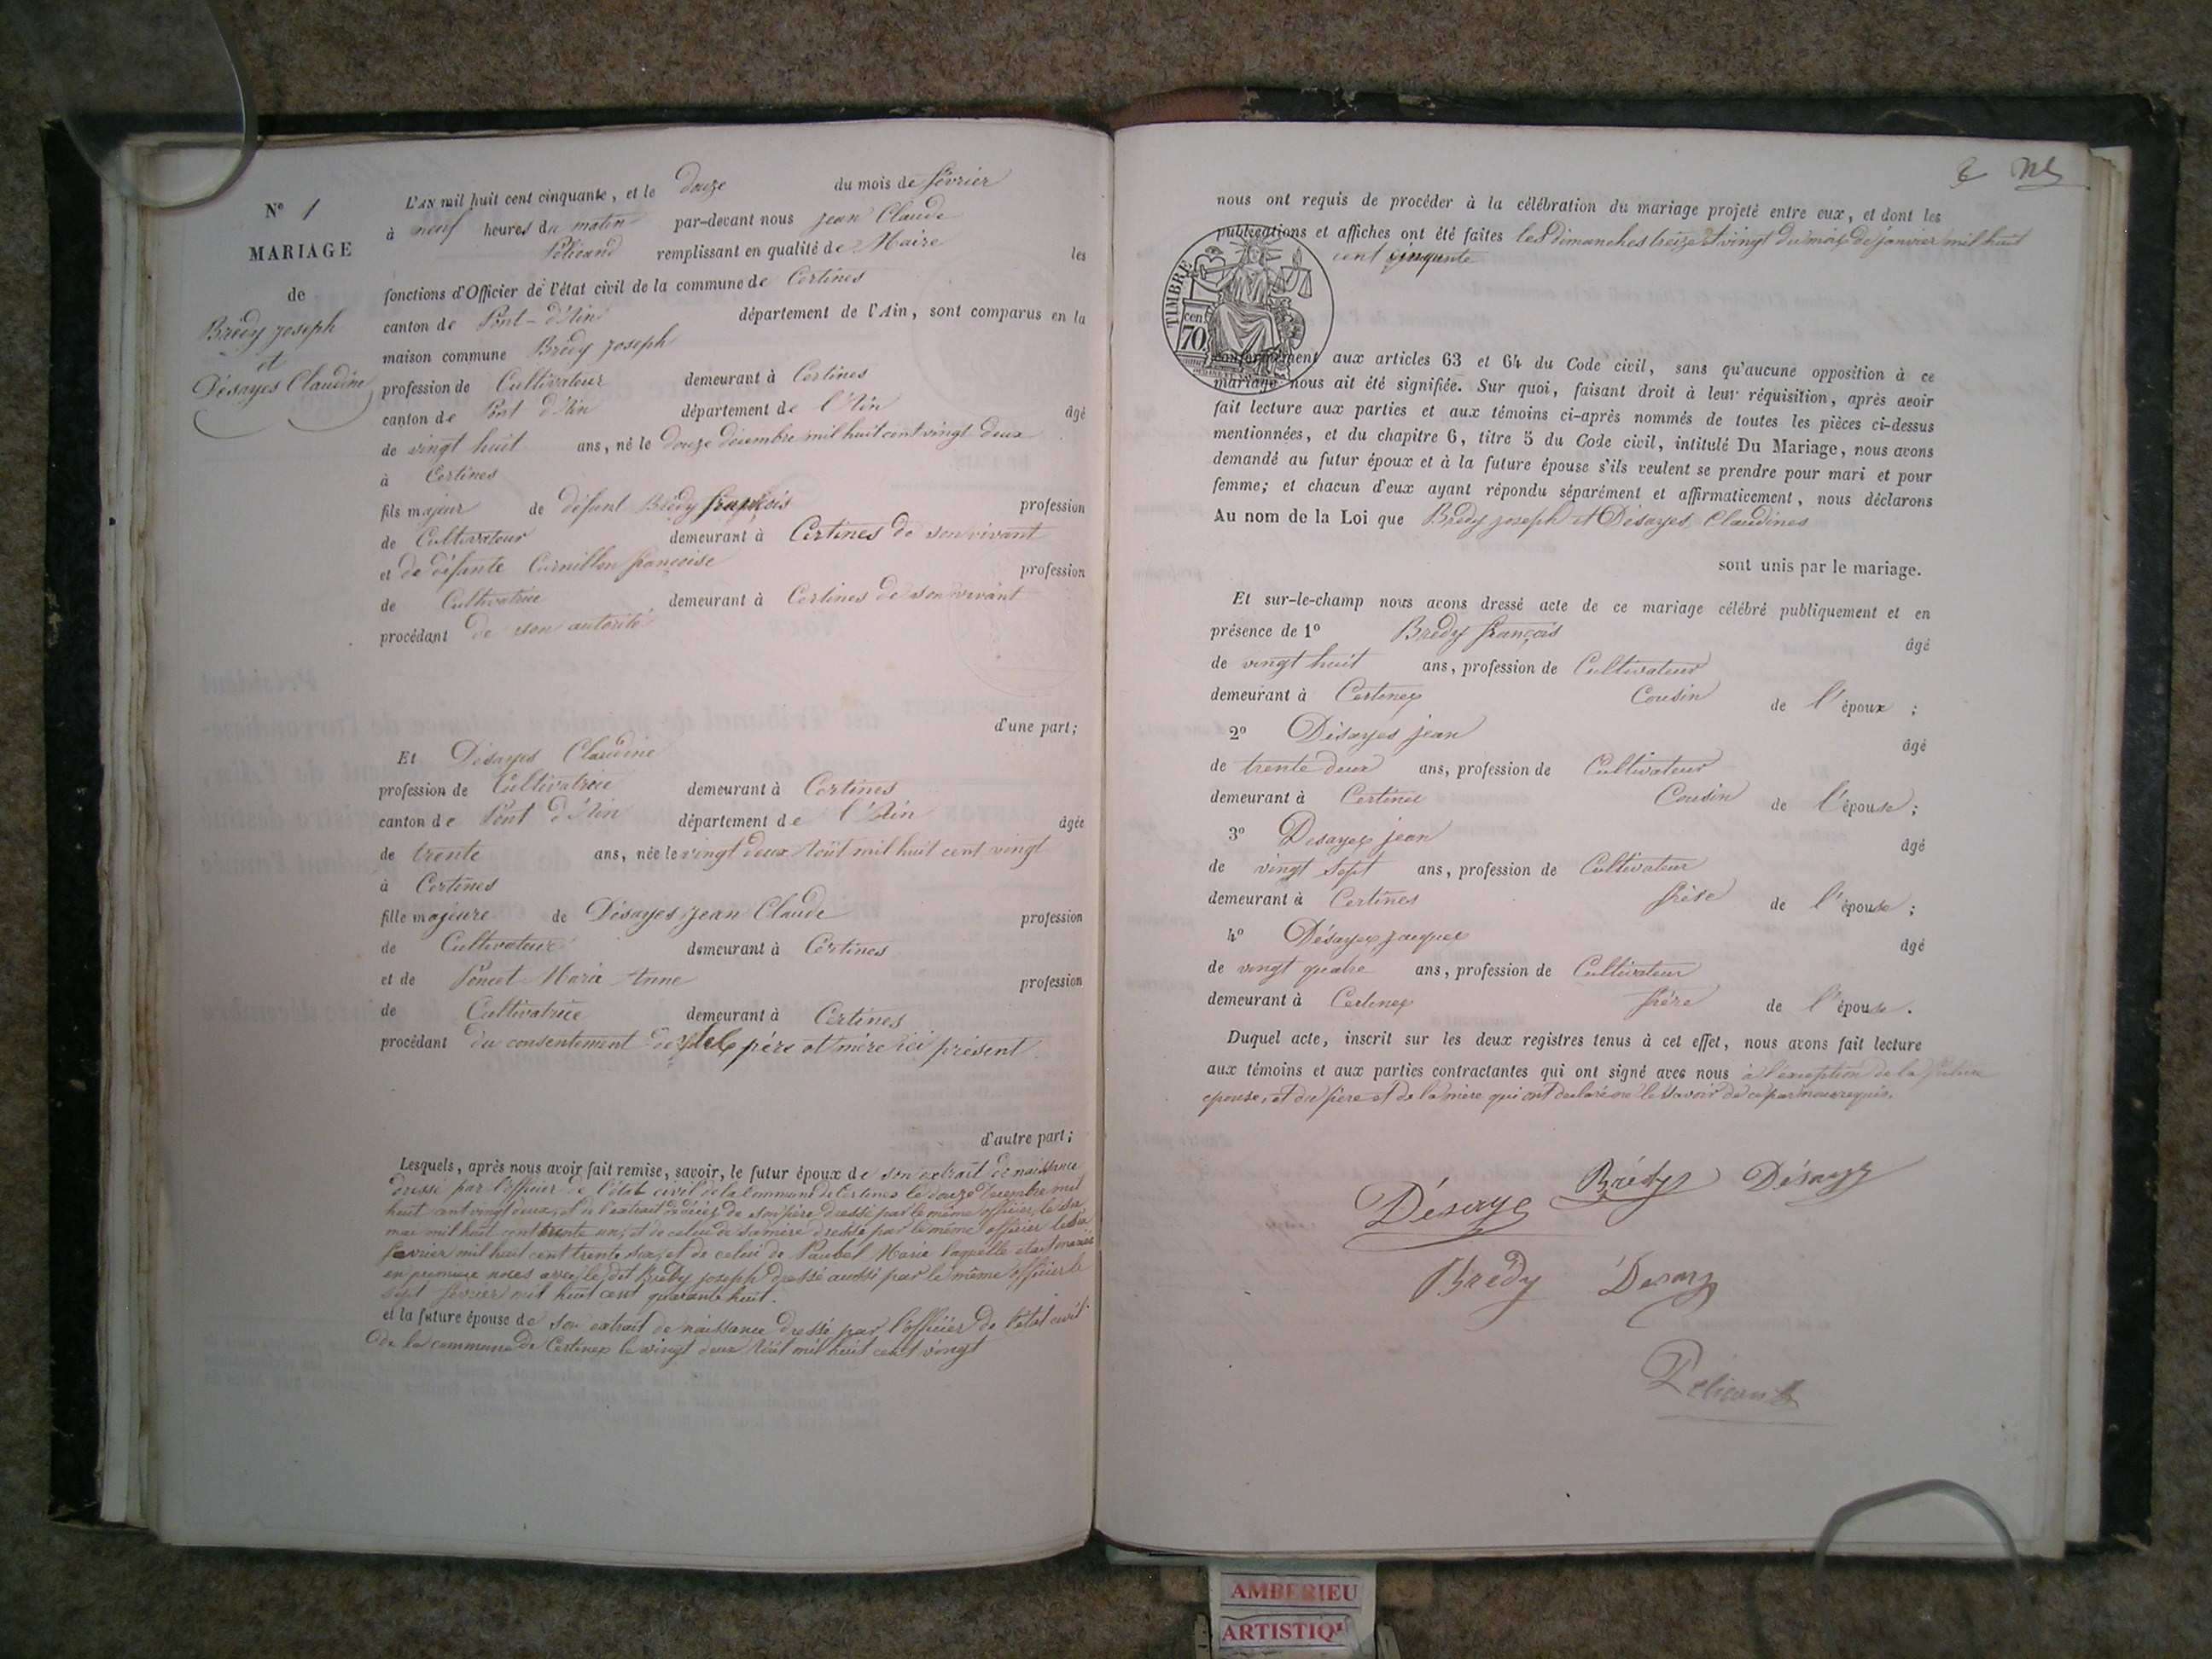 N° 1
MARIAGE
de
Brédy joseph
et
Désayes Claudine
L'AN mil huit cent cinquante, et le douze du mois de février
à neuf heures du matin par-devant nous jean Claude
Pélicand remplissant en qualité de Maire les
fonctions d'Officier de l'état civil de la commune de Certines
canton de Pont-d'Ain département de l'Ain, sont comparus en la
maison commune Brédy joseph
profession de Cultivateur demeurant à Certines
canton de Pont d'Ain département de l'Ain âgé
de vingt huit ans, né le douze décembre mil huit cent vingt deux
à Certines
fils majeur de défunt Brédy françois profession
de Cultivateur demeurant à Certines de son vivant
et de défunte Cornillon françoise profession
de Cultivatrice demeurant à Certines de son vivant
procédant de son autorité
d'une part;
Et Désayes Claudine
profession de Cultivatrice demeurant à Certines
canton de Pont d'Ain département de l'Ain âgée
de trente ans, née le vingt deux Aoüt mil huit cent vingt
à Certines
fille majeure de Désayes jean Claude profession
de Cultivateur demeurant à Certines
et de Poncet Marie Anne profession
de Cultivatrice demeurant à Certines
procédant du consentement de ses père et mère ici présent
d'autre part;
Lesquels, après nous avoir fait remise, savoir, le futur époux de son extrait de naissance
dressé par l'officier de l'état civil de la Commune de Certines le douze décembre mil
huit cent vingt deux, et de l'extrait de décès de son père dressé par le même officier, le dix
mai mil huit cent trente un, et de celui de sa mère dressé par le même officier le dix
février mil huit cent trente six, et de celui de Paubel Marie laquelle etait mariée
en première noces avec le dit Brédy joseph dressé aussi par le même officier le
sept février mil huit cent quarante huit.
et la future épouse de son extrait de naissance dressé par l'officier de l'état civil
de la commune de Certines le vingt deux Aoüt mil huit cent vingt
nous ont requis de procéder à la célébration du mariage projeté entre eux, et dont les
publications et affiches ont été faites les dimanches treize et vingt du mois de janvier mil huit
cent cinquante
TIMBRE
70 cen
conformément aux articles 63 et 64 du Code civil, sans qu'aucune opposition à ce
mariage nous ait été signifiée. Sur quoi, faisant droit à leur réquisition, après avoir
fait lecture aux parties et aux témoins ci-après nommés de toutes les pièces ci-dessus
mentionnées, et du chapitre 6, titre 5 du Code civil, intitulé Du Mariage, nous avons
demandé au futur époux et à la future épouse s'ils veulent se prendre pour mari et pour
femme; et chacun d'eux ayant répondu séparément et affirmativement, nous déclarons
Au nom de la Loi que Brédy joseph et Désayes Claudines
sont unis par le mariage.
Et sur-le-champ nous avons dressé acte de ce mariage célébré publiquement et en
présence de 1° Brédy françois âgé
de vingt huit ans, profession de Cultivateur
demeurant à Certines Cousin de l'époux ;
2° Désayes jean âgé
de trente deux ans, profession de Cultivateur
demeurant à Certines Cousin de l'épouse ;
3° Desayes jean âgé
de vingt sept ans, profession de Cultivateur
demeurant à Certines frère de l'épouse ;
4° Désayes jacques âgé
de vingt quatre ans, profession de Cultivateur
demeurant à Certines frère de l'épouse.
Duquel acte, inscrit sur les deux registres tenus à cet effet, nous avons fait lecture
aux témoins et aux parties contractantes qui ont signé avec nous à l'exception de la future
épouse, et du père et de la mère qui ont déclaré ne le savoir de ce par nous requis.
Désaye Brédy Désaye
Brédy Desay
Pelicand
AMBERIEU
ARTISTIQU